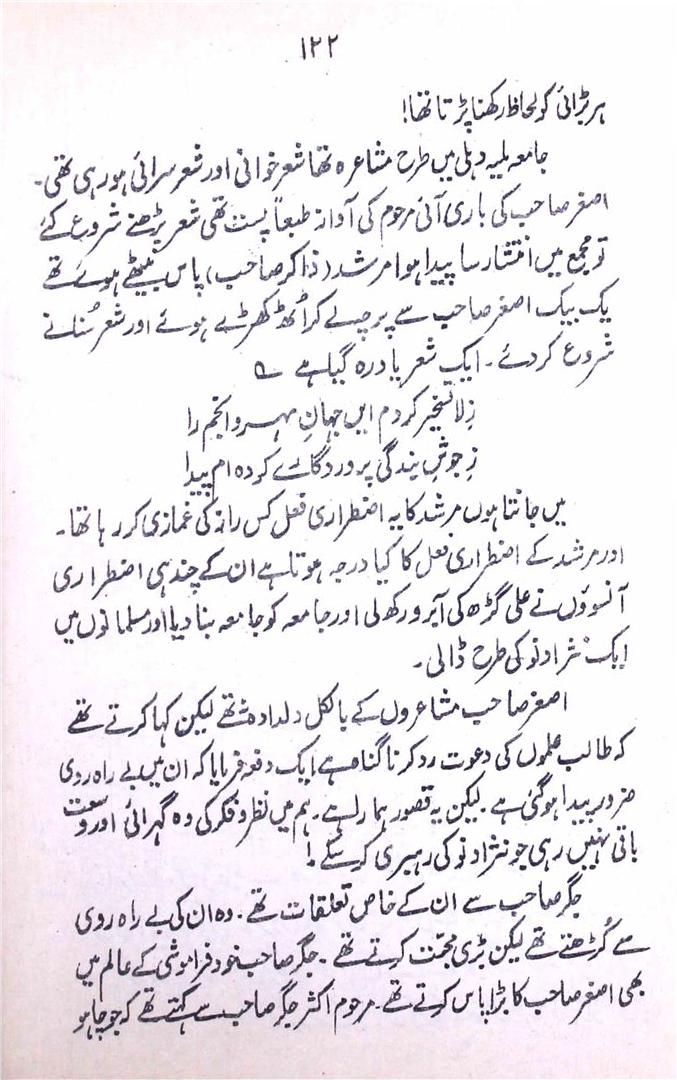 ۱۲۲
ہر بڑائی کو لحاظ رکھنا پڑتا تھا!
جامعہ ملیہ دہلی میں طرح مشاعرہ تھا شعر خوانی اور شعر سرائی ہو رہی تھی۔
اصغر صاحب کی باری آئی مرحوم کی آواز طبعاً پست تھی شعر پڑھنے شروع کئے
تو مجمع میں انتشار سا پیدا ہوا مرشد (ذاکر صاحب) پاس بیٹھے ہوئے تھے
یک بیک اصغر صاحب سے پرچہ لے کر اُٹھ کھڑے ہوئے اور شعر سُنانے
شروع کر دئے۔ ایک شعر یاد رہ گیا ہے ؎
زِلا تسخیر کردم ایں جہانِ مہر و انجم را
زِ جوشِ بندگی پروردگارے کردہ ام پیدا
میں جانتا ہوں مرشد کا یہ اضطراری فعل کس راز کی غمازی کر رہا تھا۔
اور مرشد کے اضطراری فعل کا کیا درجہ ہوتا ہے ان کے چند ہی اضطراری
آنسوؤں نے علی گڑھ کی آبرو رکھ لی اور جامعہ کو جامعہ بنا دیا اور مسلمانوں میں
ایک نژاد نو کی طرح ڈالی۔
اصغر صاحب مشاعروں کے بالکل دلدادہ نہ تھے لیکن کہا کرتے تھے
کہ طالب علموں کی دعوت رد کرنا گناہ ہے ایک دفعہ فرمایا کہ ان میں بے راہ روی
ضرور پیدا ہو گئی ہے لیکن یہ قصور ہمارا ہے۔ ہم میں نظر و فکر کی وہ گہرائی اور وسعت
باقی نہیں رہی جو نژاد نو کی رہبری کر سکے۔!
جگر صاحب سے ان کے خاص تعلقات تھے۔ وہ ان کی بے راہ روی
سے کُڑھتے تھے لیکن بڑی محبت کرتے تھے۔ جگر صاحب خود فراموشی کے عالم میں
بھی اصغر صاحب کا بڑا پاس کرتے تھے۔ مرحوم اکثر جگر صاحب سے کہتے تھے کہ جو چاہو